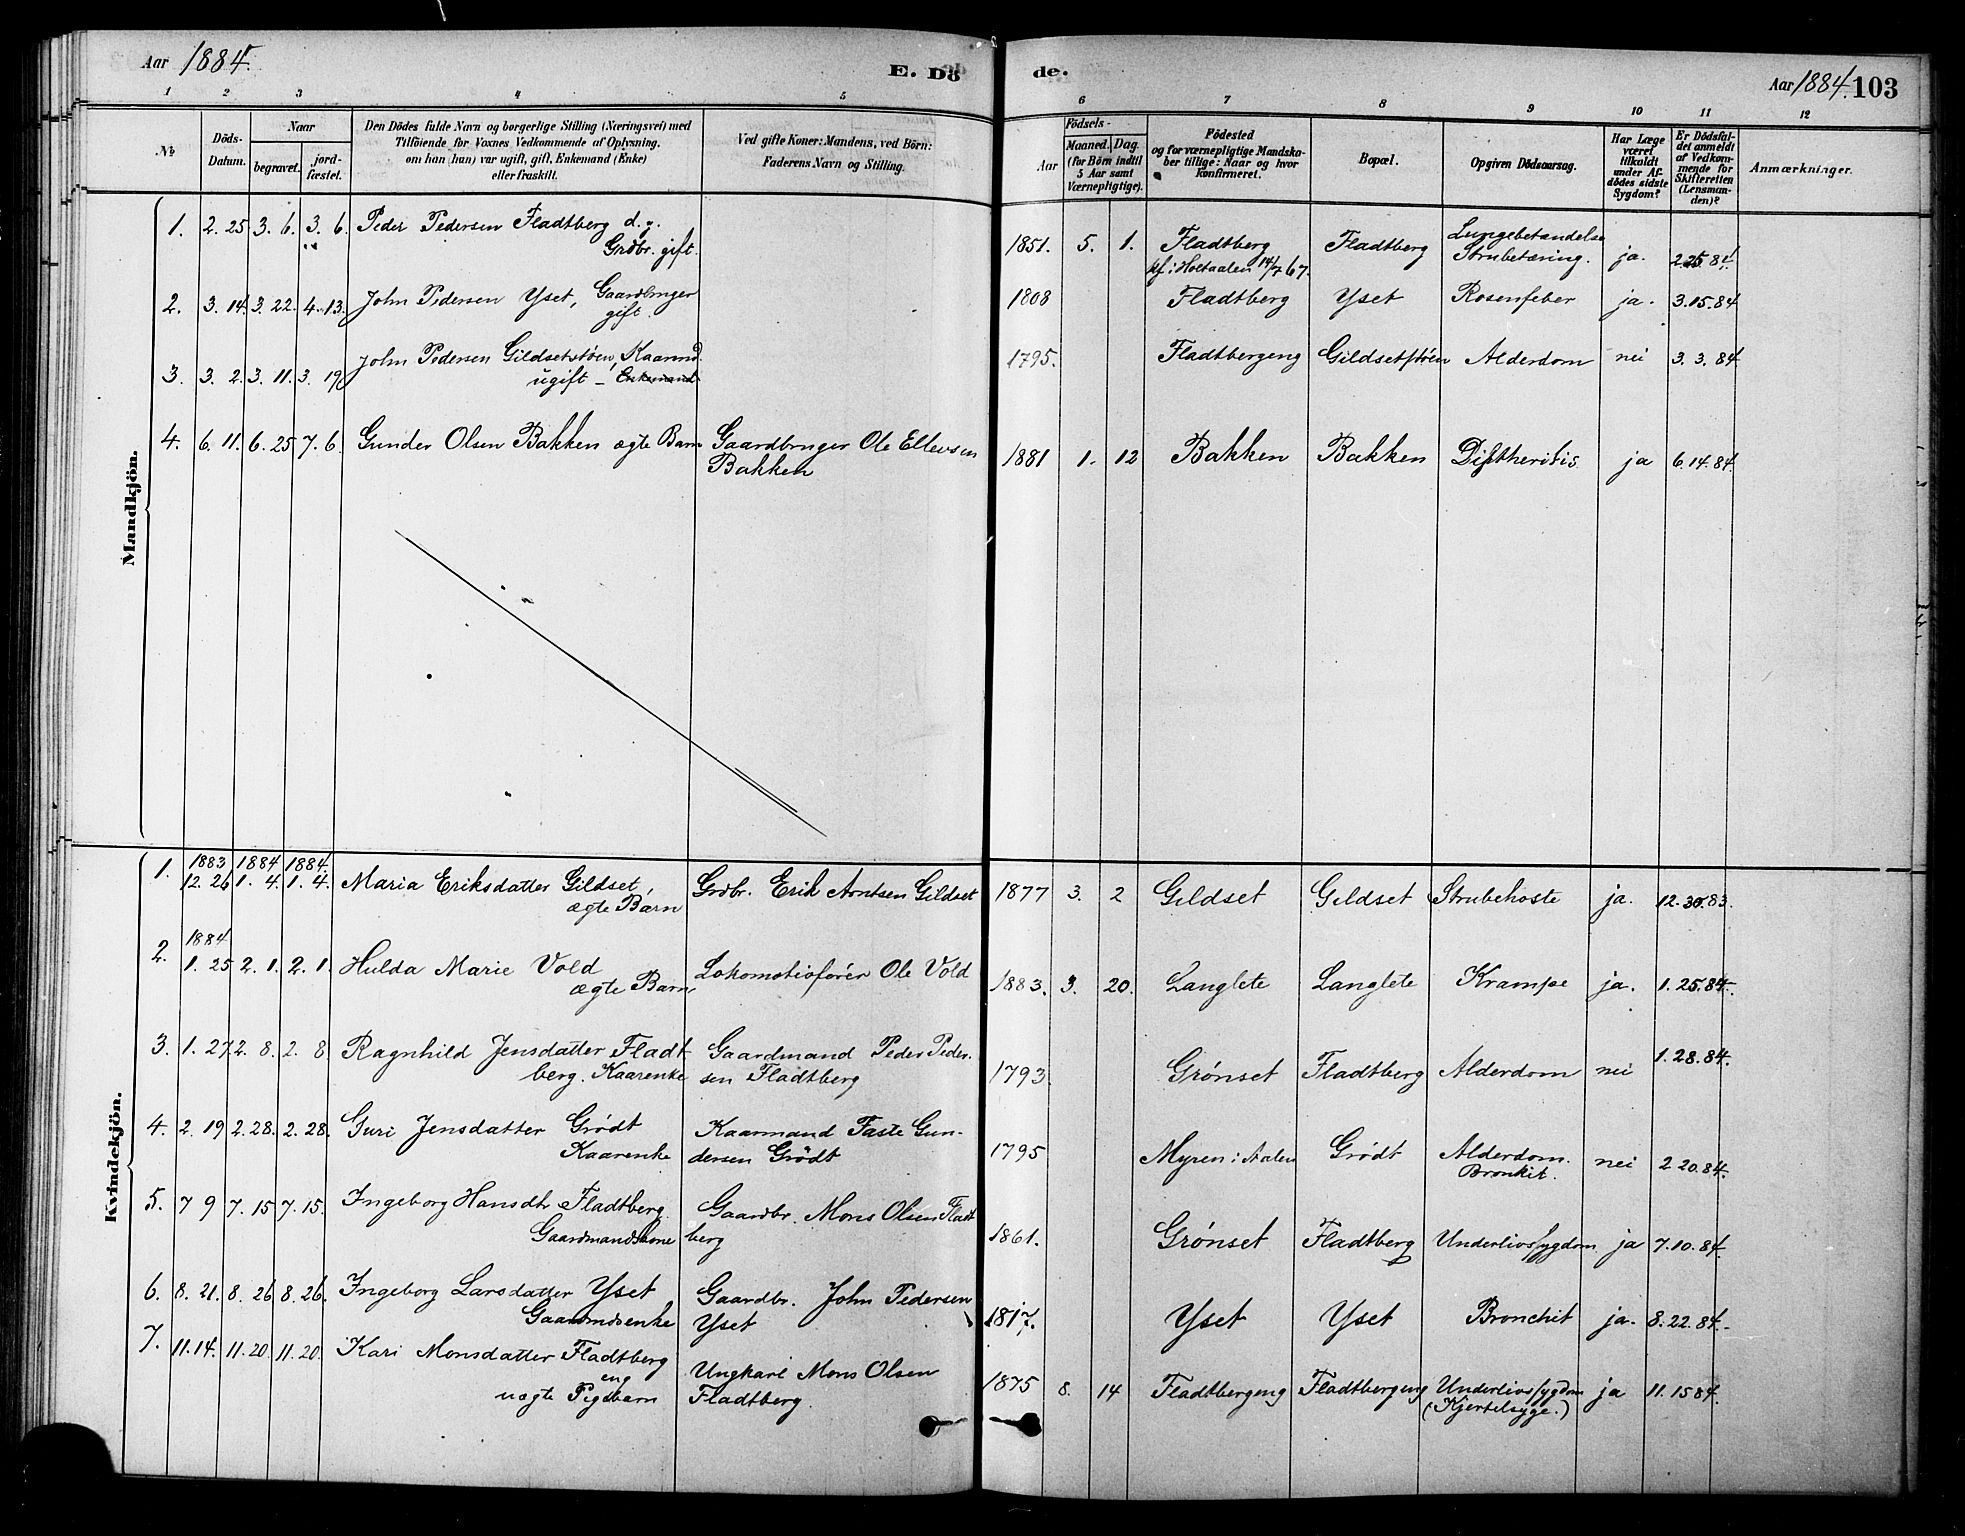 Aar 1884.
E. Dö
de.
Aar 1884. 103
1 2 3 4 5 6 7 8 9 10 11 12
No
Döds-Datum.
Naar
begravet.
jord-fæstet.
Den Dödes fulde Navn og borgerlige Stilling (Næringsvei) med
Tilföiende for Voxnes Vedkommende af Oplysning,
om han (hun) var ugift, gift, Enkemand (Enke)
eller fraskilt.
Ved gifte Koner: Mandens, ved Börn:
Faderens Navn og Stilling.
Födsels-
Aar
Maaned. Dag.
(for Börn indtil
5 Aar samt
Værnepligtige).
Födested
og for værnepligtige Mandska-
ber tillige: Naar og hvor
konfirmeret.
Bopæl.
Opgiven Dödsaarsag.
Har Læge
været
tilkaldt
under Af-
dödes sidste
Sygdom?
Er Dödsfal-
det anmeldt
af Vedkom-
mende for
Skifteretten
(Lensman-
den)?
Anmærkninger.
Mandkjön.
1. 2. 25 3. 6. 3. 6. Peder Pedersen Fladtberg d.y.
Grdbr. gift.
1851. 5. 1. Fladtberg Fladtberg Lungebetændelse
kf. i Holtaalen 14/7 67. Strubetæring. ja. 2.25.84.
2. 3. 14. 3. 22. 4. 13. John Pedersen Yset, Gaardbruger
gift.
1808 Fladtberg Yset Rosenfeber ja. 3.15.84
3. 3. 2. 3. 11. 3. 19. John Pedersen Gildsetstøen, Kaarmd.
ugift – Enkemand
1795. Fladtbergeng Gildsetstøen Alderdom nei 3. 3. 84.
4. 6. 11. 6. 25. 7. 6. Gunder Olsen Bakken ægte Barn Gaardbruger Ole Ellevsen
Bakken
1881 1. 12 Bakken Bakken Diftheritis. ja 6.14.84.
Kvindekjön.
1883 1884 1884.
1. 12. 26 1. 4. 1. 4. Maria Eriksdatter Gildset, Grdbr. Erik Arntsen Gildset
ægte Barn
1877 3. 2 Gildset Gildset Strubehoste ja. 12.30.83.
1884
2. 1. 25 2. 1. 2. 1. Hulda Marie Vold Lokomotivfører Ole Vold
ægte Barn,
1883. 3. 20. Langlete Langlete Krampe ja. 1.25.84.
3. 1. 27. 2. 8. 2. 8 Ragnhild Jensdatter Fladt Gaardmand Peder Peder-
berg. Kaarenke sen Fladtberg
1793. Grønset Fladtberg Alderdom nei 1.28.84.
4. 2. 19 2. 28. 2. 28. Guri Jensdatter Grødt Kaarmand Faste Gun-
Kaarenke dersen Grødt
1795 Myren i Aalen Grødt Alderdom. nei 2 20.84.
Bronkit.
5. 7 9 7. 15. 7. 15. Ingeborg Hansdtr Fladtberg Gaardbr. Mons Olsen Fladt
Gaardmandskone berg
1861. Grønset Fladtberg Underlivssygdom ja 7.10.84.
6. 8. 21. 8. 26 8. 26. Ingeborg Larsdatter Yset Gaardbr. John Pedersen
Gaardmdsenke Yset
1817. Yset Yset Bronchit ja. 8.22.84.
7. 11. 14. 11. 20. 11. 20. Kari Monsdatter Fladtberg
eng Ungkarl Mons Olsen
uægte Pigebarn Fladtberg.
1875 8. 14 Fladtbergeng Fladtbergeng Underlivssygdom ja 11. 15 84.
(Kjertelsyge.)